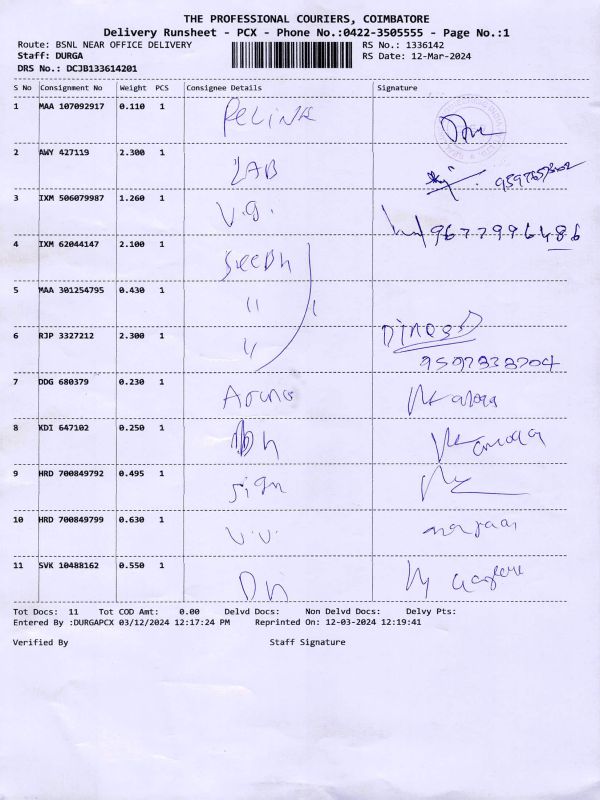 THE PROFESSIONAL COURIERS, COIMBATORE
Delivery Runsheet - PCX - Phone No.:0422-3505555 - Page No.:1
Route: BSNL NEAR OFFICE DELIVERY RS No.: 1336142
Staff: DURGA RS Date: 12-Mar-2024
DRS No.: DCJB133614201
S No Consignment No Weight PCS Consignee Details Signature
1 MAA 107092917 0.110 1
2 AWY 427119 2.300 1 LAB
3 IXM 506079987 1.260 1 V.g. 9677996486
4 IXM 62044147 2.100 1
5 MAA 301254795 0.430 1 "
6 RJP 3327212 2.300 1 "
7 DDG 680379 0.230 1
8 KDI 647102 0.250 1
9 HRD 700849792 0.495 1 sign
10 HRD 700849799 0.630 1 V.V.
11 SVK 10488162 0.550 1
Tot Docs: 11 Tot COD Amt: 0.00 Delvd Docs: Non Delvd Docs: Delvy Pts:
Entered By :DURGAPCX 03/12/2024 12:17:24 PM Reprinted On: 12-03-2024 12:19:41
Verified By Staff Signature